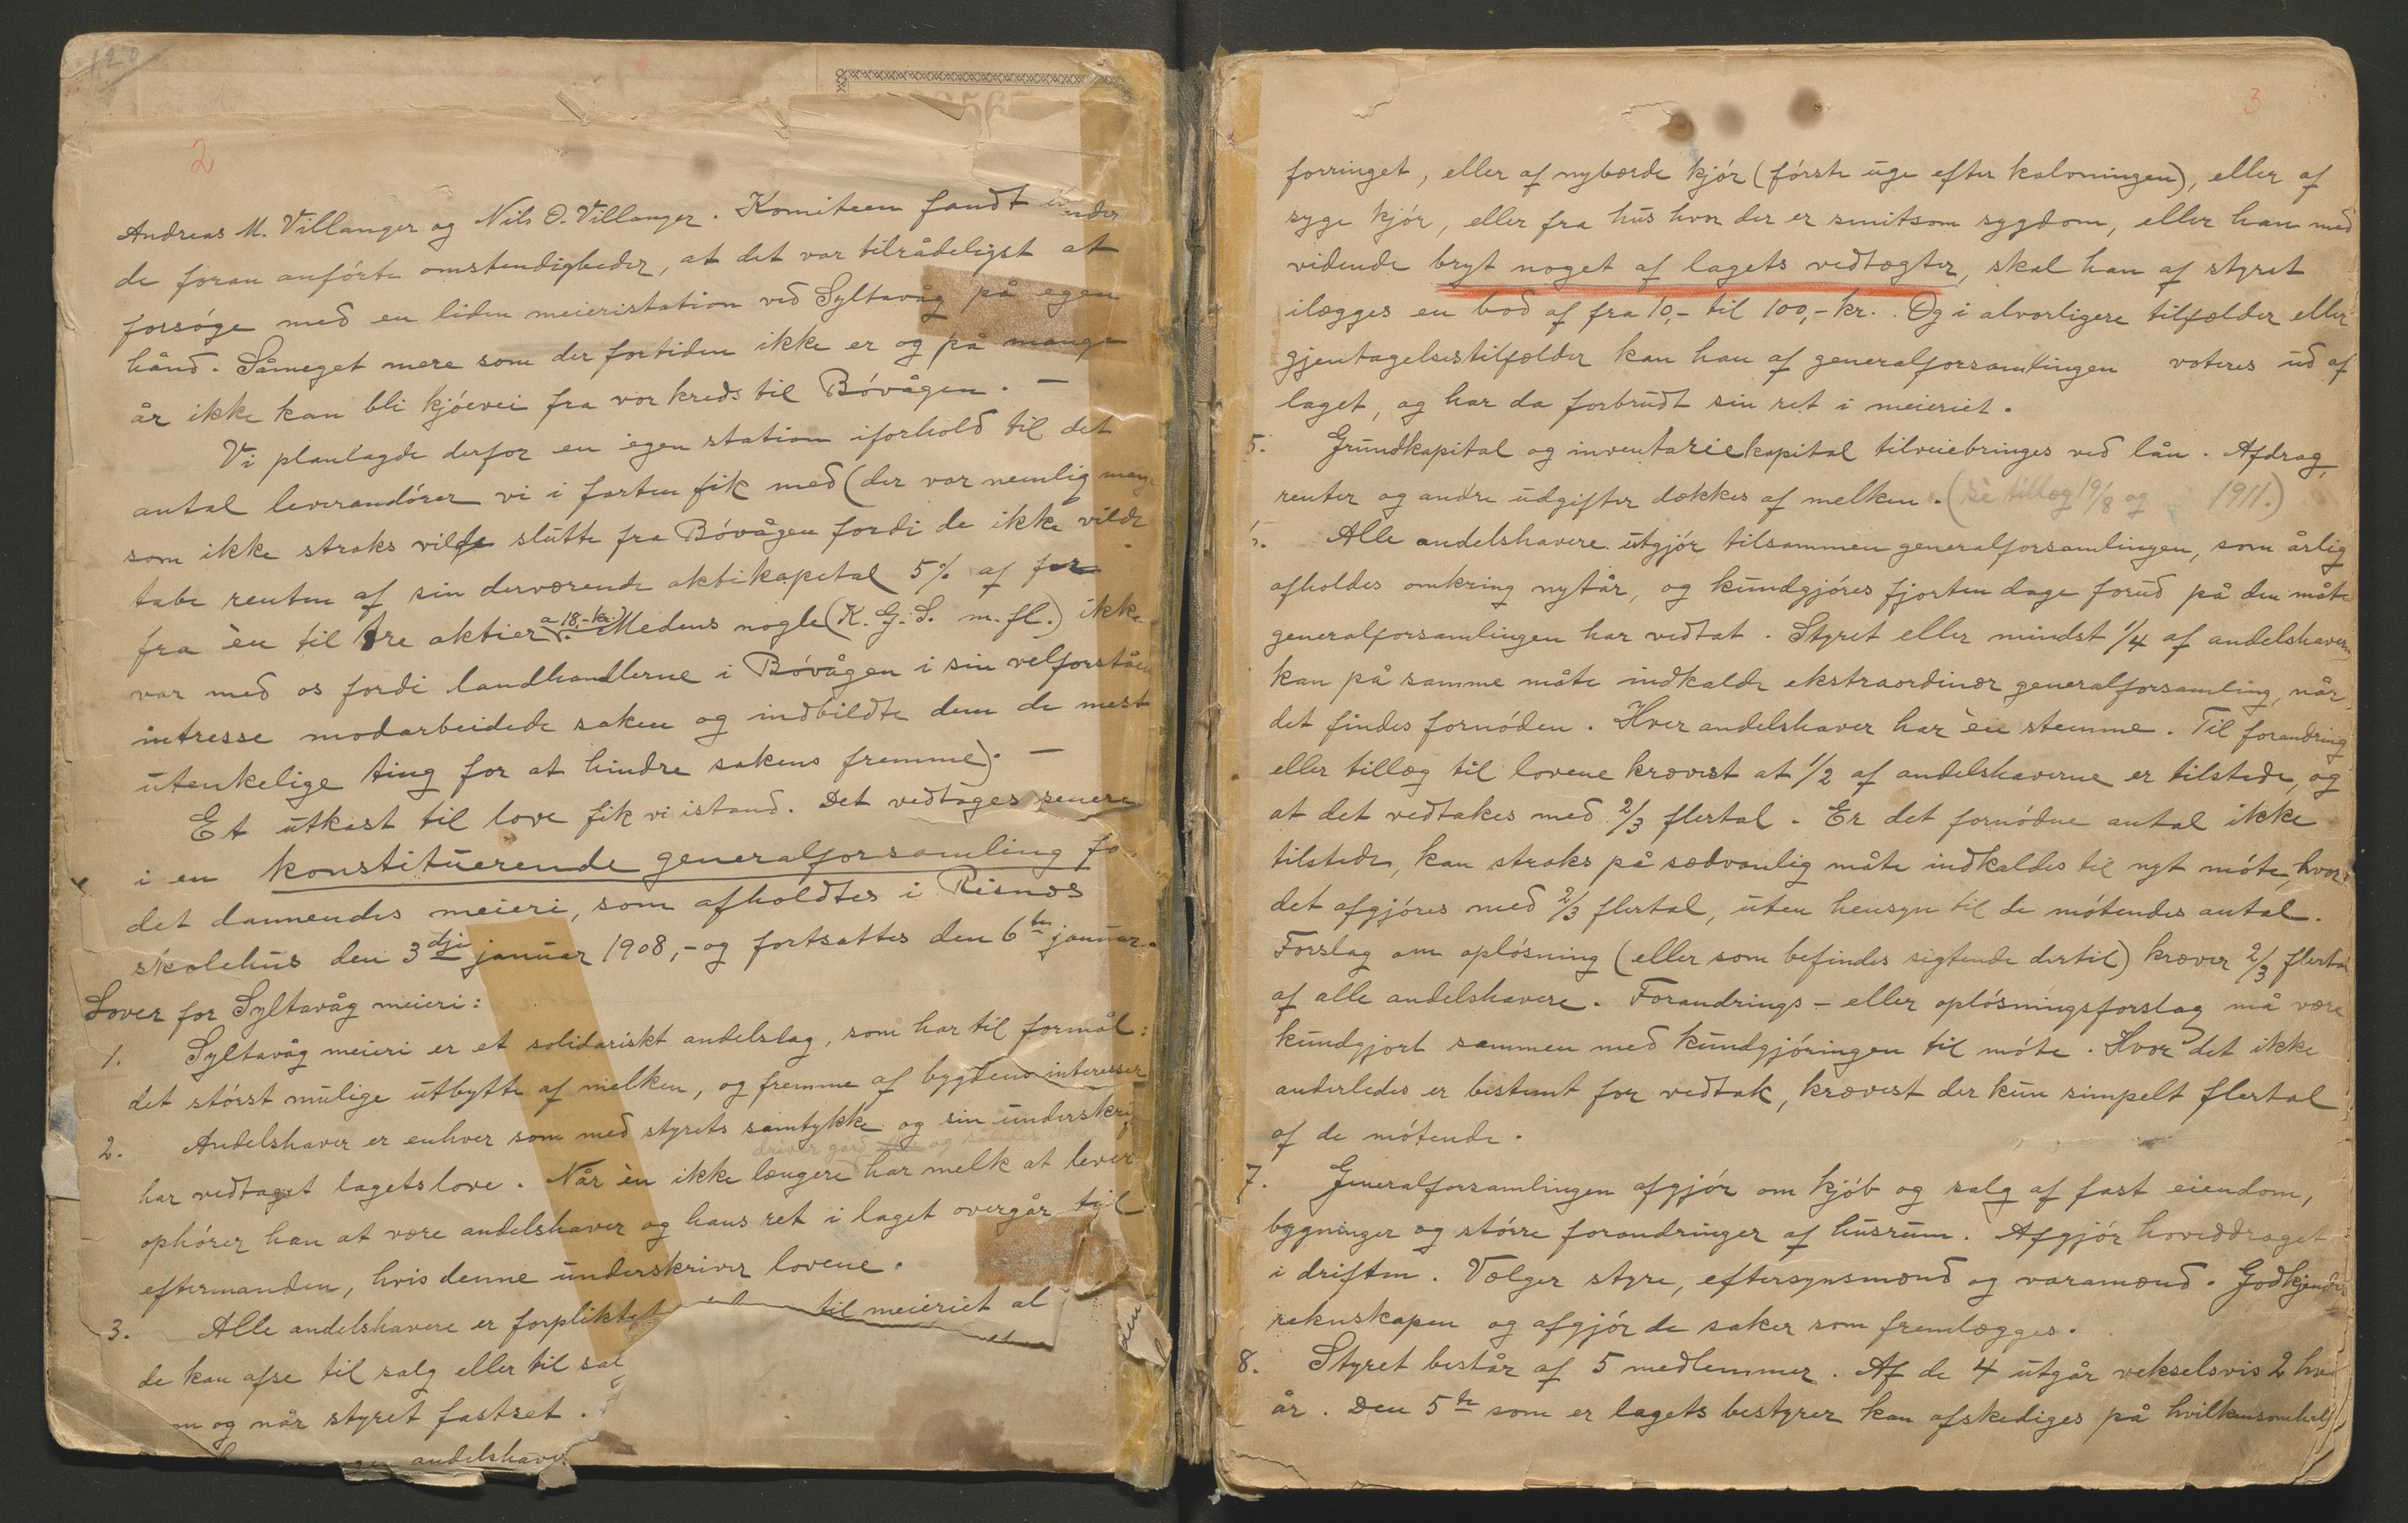 2
Andreas M. Villanger og Nils O. Villanger. Komiteen fandt under
de foran anförte omstendigheder, at det var tilrådeligst at
forsöge med en liden meieristation ved Syltavåg på egen
hånd. Såmeget mere som der fortiden ikke er og på mange
år ikke kan bli kjöevei fra vor kreds til Bövågen. —
Vi planlagde derfor en egen station iforhold til det
antal leverandörer vi i farten fik med (der var nemlig mange
som ikke straks vilde slutte fra Bövågen fordi de ikke vilde
tabe renten af sin derværende aktikapital 5% af for
fra èn til tre aktier a 18,- kr.). Medens nogle (K. G. S. m. fl.) ikke
var med os fordi landhandlerne i Bövågen i sin velforståe
intresse modarbeidede saken og indbildte dem de mest
utenkelige ting for at hindre sakens fremme). —
Et utkast til love fik vi istand. Det vedtoges senere
i en konstituerende generalforsamling fo
det dannendes meieri, som afholdtes i Risnes
skolehus den 3dje januar 1908,- og fortsattes den 6te januar.
Lover for Syltavåg meieri:
1. Syltavåg meieri er et solidariskt andelslag, som har til formål:
det störst mulige utbytte af melken, og fremme af bygdens interesser
2. Andelshaver er enhver som med styrets samtykke og sin underskrif
driver gard og således
har vedtaget lagets love. Når èn ikke længere har melk at lever
ophörer han at være andelshaver og hans ret i laget overgår til
eftermanden, hvis denne underskriver lovene.
3. Alle andelshavere er forpliktet til meieriet al
de kan afse til salg eller til sal
m og når styret fastset.
andelshave
den
3
forringet, eller af nybærde kjör (förste uge efter kalvningen), eller af
syge kjör, eller fra hus hvor der er smitsom sygdom, eller han med
vidende bryt noget af lagets vedtægter, skal han af styret
ilægges en bod af fra 10,- til 100,- kr. Og i alvorligere tilfælder eller
gjentagelsestilfælder kan han af generalforsamlingen voteres ud af
laget, og har da forbrudt sin ret i meieriet.
5. Grundkapital og inventariekapital tilveiebringes ved lån. Afdrag,
renter og andre udgifter dækkes af melken. (sè tillæg 19/8 og 1911.)
Alle andelshavere utgjör tilsammen generalforsamlingen, som årlig
afholdes omkring nytår, og kundgjöres fjorten dage forud på den måte
generalforsamlingen har vedtat. Styret eller mindst 1/4 af andelshaverne
kan på samme måte indkalde ekstraordinær generalforsamling, når
det findes fornöden. Hver andelshaver har èn stemme. Til forandring
eller tillæg til lovene krævest at 1/2 af andelshaverne er tilstede, og
at det vedtakes med 2/3 flertal. Er det fornödne antal ikke
tilstede, kan straks på sædvanlig måte indkaldes til nyt möte, hvor
det afgjöres med 2/3 flertal, uten hensyn til de mötendes antal.
Forslag om oplösning (eller som befindes sigtende dertil) kræver 2/3 flertal
af alle andelshavere. Forandrings- eller oplösningsforslag må være
kundgjort sammen med kundgjöringen til möte. Hvor det ikke
anderledes er bestemt for vedtak, krævest der kun simpelt flertal
af de mötende.
7. Generalforsamlingen afgjör om kjöb og salg af fast eiendom,
bygninger og större forandringer af husrum. Afgjör hoveddraget
i driften. Vælger styre, eftersynsmænd og varamænd. Godkjender
rekneskapen og afgjör de saker som fremlægges.
8. Styret består af 5 medlemmer. Af de 4 utgår vekselsvis 2 hve
år. Den 5te som er lagets bestyrer kan afskediges på hvilkensomhelst